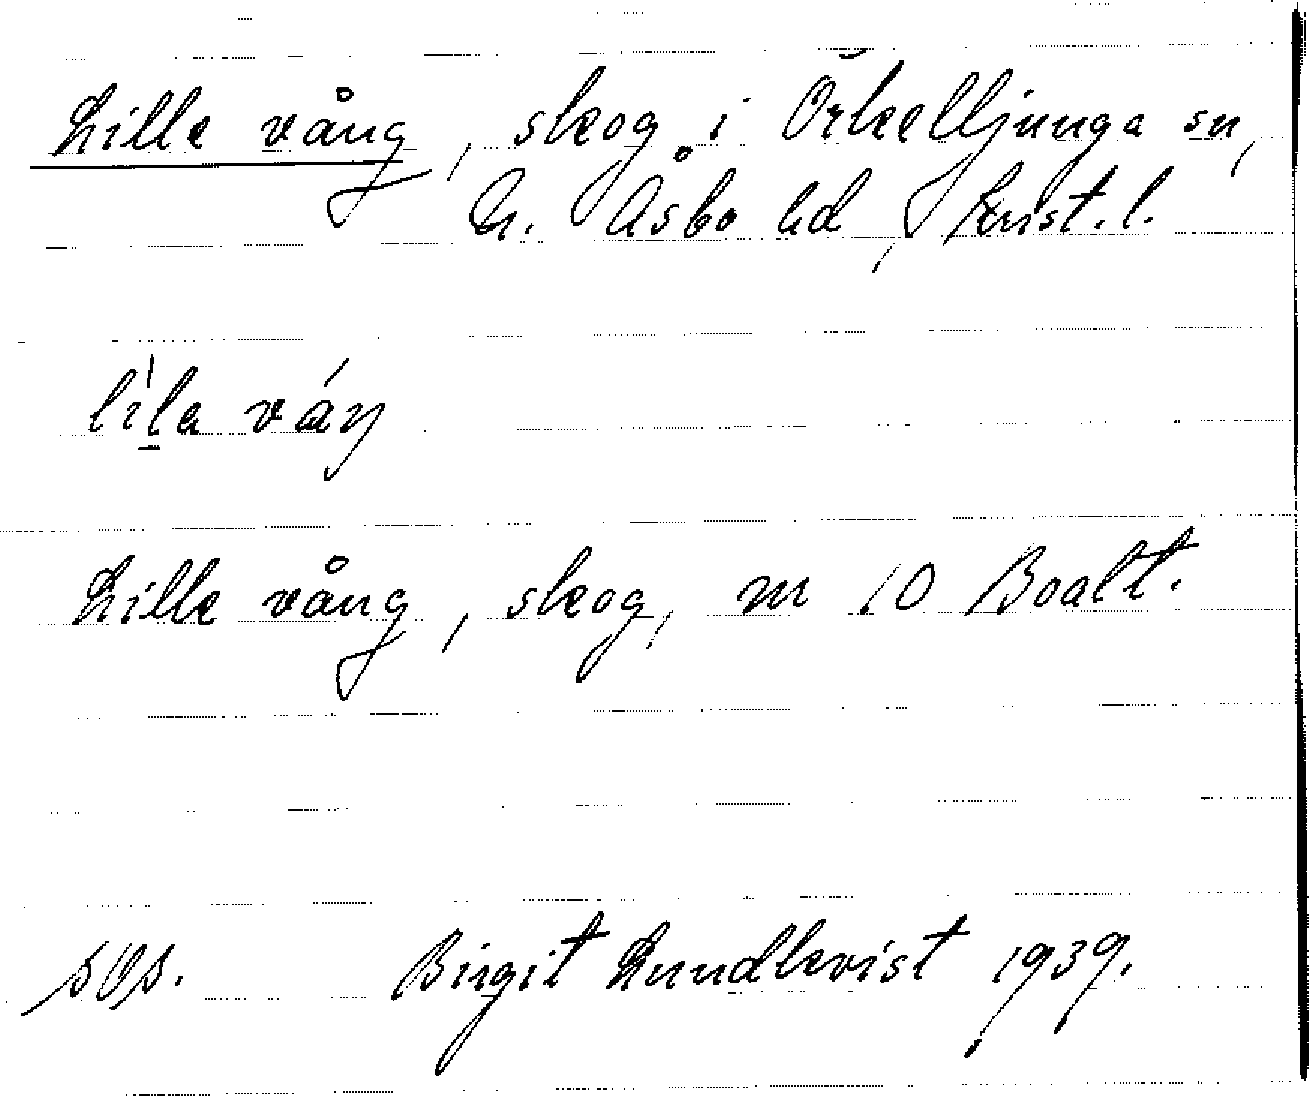 Lille vång, skog i Örkelljunga sn,
N. Åsbo hd, Krist. l.
lila váŋ
Lille vång, skog, nr 10 Boalt.
Birgit Lundkvist 1939.